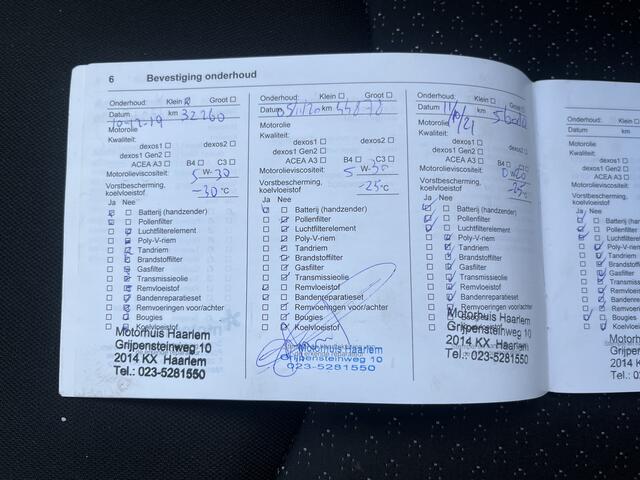 6 Bevestiging onderhoud
Onderhoud: Klein Groot
Datum 10-12-19 km 32260
Motorolie
Kwaliteit:
dexos1 dexos2
dexos1 Gen2
ACEA A3 B4 C3
Motorolieviscositeit: 5 W-30
Vorstbescherming, koelvloeistof -30 °C
Ja Nee
Batterij (handzender)
Pollenfilter
Luchtfilterelement
Poly-V-riem
Tandriem
Brandstoffilter
Gasfilter
Transmissieolie
Remvloeistof
Bandenreparatieset
Remvoeringen voor/achter
Bougies
Koelvloeistof
Motorhuis Haarlem
Grijpensteinweg 10
2014 KX Haarlem
Tel.: 023-5281550
Onderhoud: Klein Groot
Datum 05/11/20 km 44878
Motorolie
Kwaliteit:
dexos1 dexos2
dexos1 Gen2
ACEA A3 B4 C3
Motorolieviscositeit: 5 W-30
Vorstbescherming, koelvloeistof -25 °C
Ja Nee
Batterij (handzender)
Pollenfilter
Luchtfilterelement
Poly-V-riem
Tandriem
Brandstoffilter
Gasfilter
Transmissieolie
Remvloeistof
Bandenreparatieset
Remvoeringen voor/achter
Bougies
Koelvloeistof
Motorhuis Haarlem
Grijpensteinweg 10
023-5281550
Onderhoud: Klein Groot
Datum 11/10/21 km
Motorolie
Kwaliteit:
dexos1 dexos2
dexos1 Gen2
ACEA A3 B4 C3
Motorolieviscositeit: 0 W-20
Vorstbescherming, koelvloeistof -25 °C
Ja Nee
Batterij (handzender)
Pollenfilter
Luchtfilterelement
Poly-V-riem
Tandriem
Brandstoffilter
Gasfilter
Transmissieolie
Remvloeistof
Bandenreparatieset
Remvoeringen voor/achter
Bougies
Koelvloeistof
Motorhuis Haarlem
Grijpensteinweg 10
2014 KX Haarlem
Tel.: 023-5281550
Onderhoud: Klein
Datum km
Motorolie
Kwaliteit:
dexos1
dexos1 Gen2
ACEA A3
Motorolieviscositeit:
Vorstbescherming, koelvloeistof
Ja Nee
Batterij
Pollenfilter
Poly-V-riem
Tandriem
Gasfilter
Bougies
Motorhuis
2014 KX
Tel.: